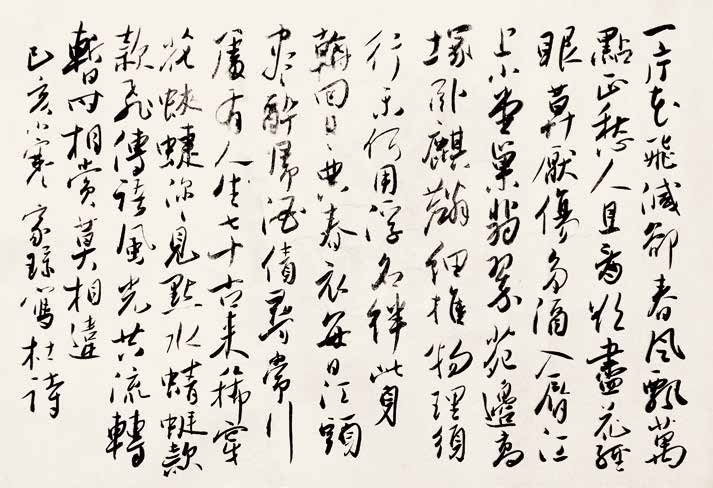 一片花飛減卻春風飄萬
點正愁人且看欲盡花經
眼莫厭傷多酒入脣江
上小堂巢翡翠苑邊高
塚臥麒麟細推物理須
行樂何用浮名絆此身
朝回日々典春衣每日江頭
盡醉歸酒債尋常行
處有人生七十古來稀穿
花蛺蝶深々見點水蜻蜓款
款飛傳語風光共流轉
暫時相賞莫相違
己亥小寒 家 寫杜詩